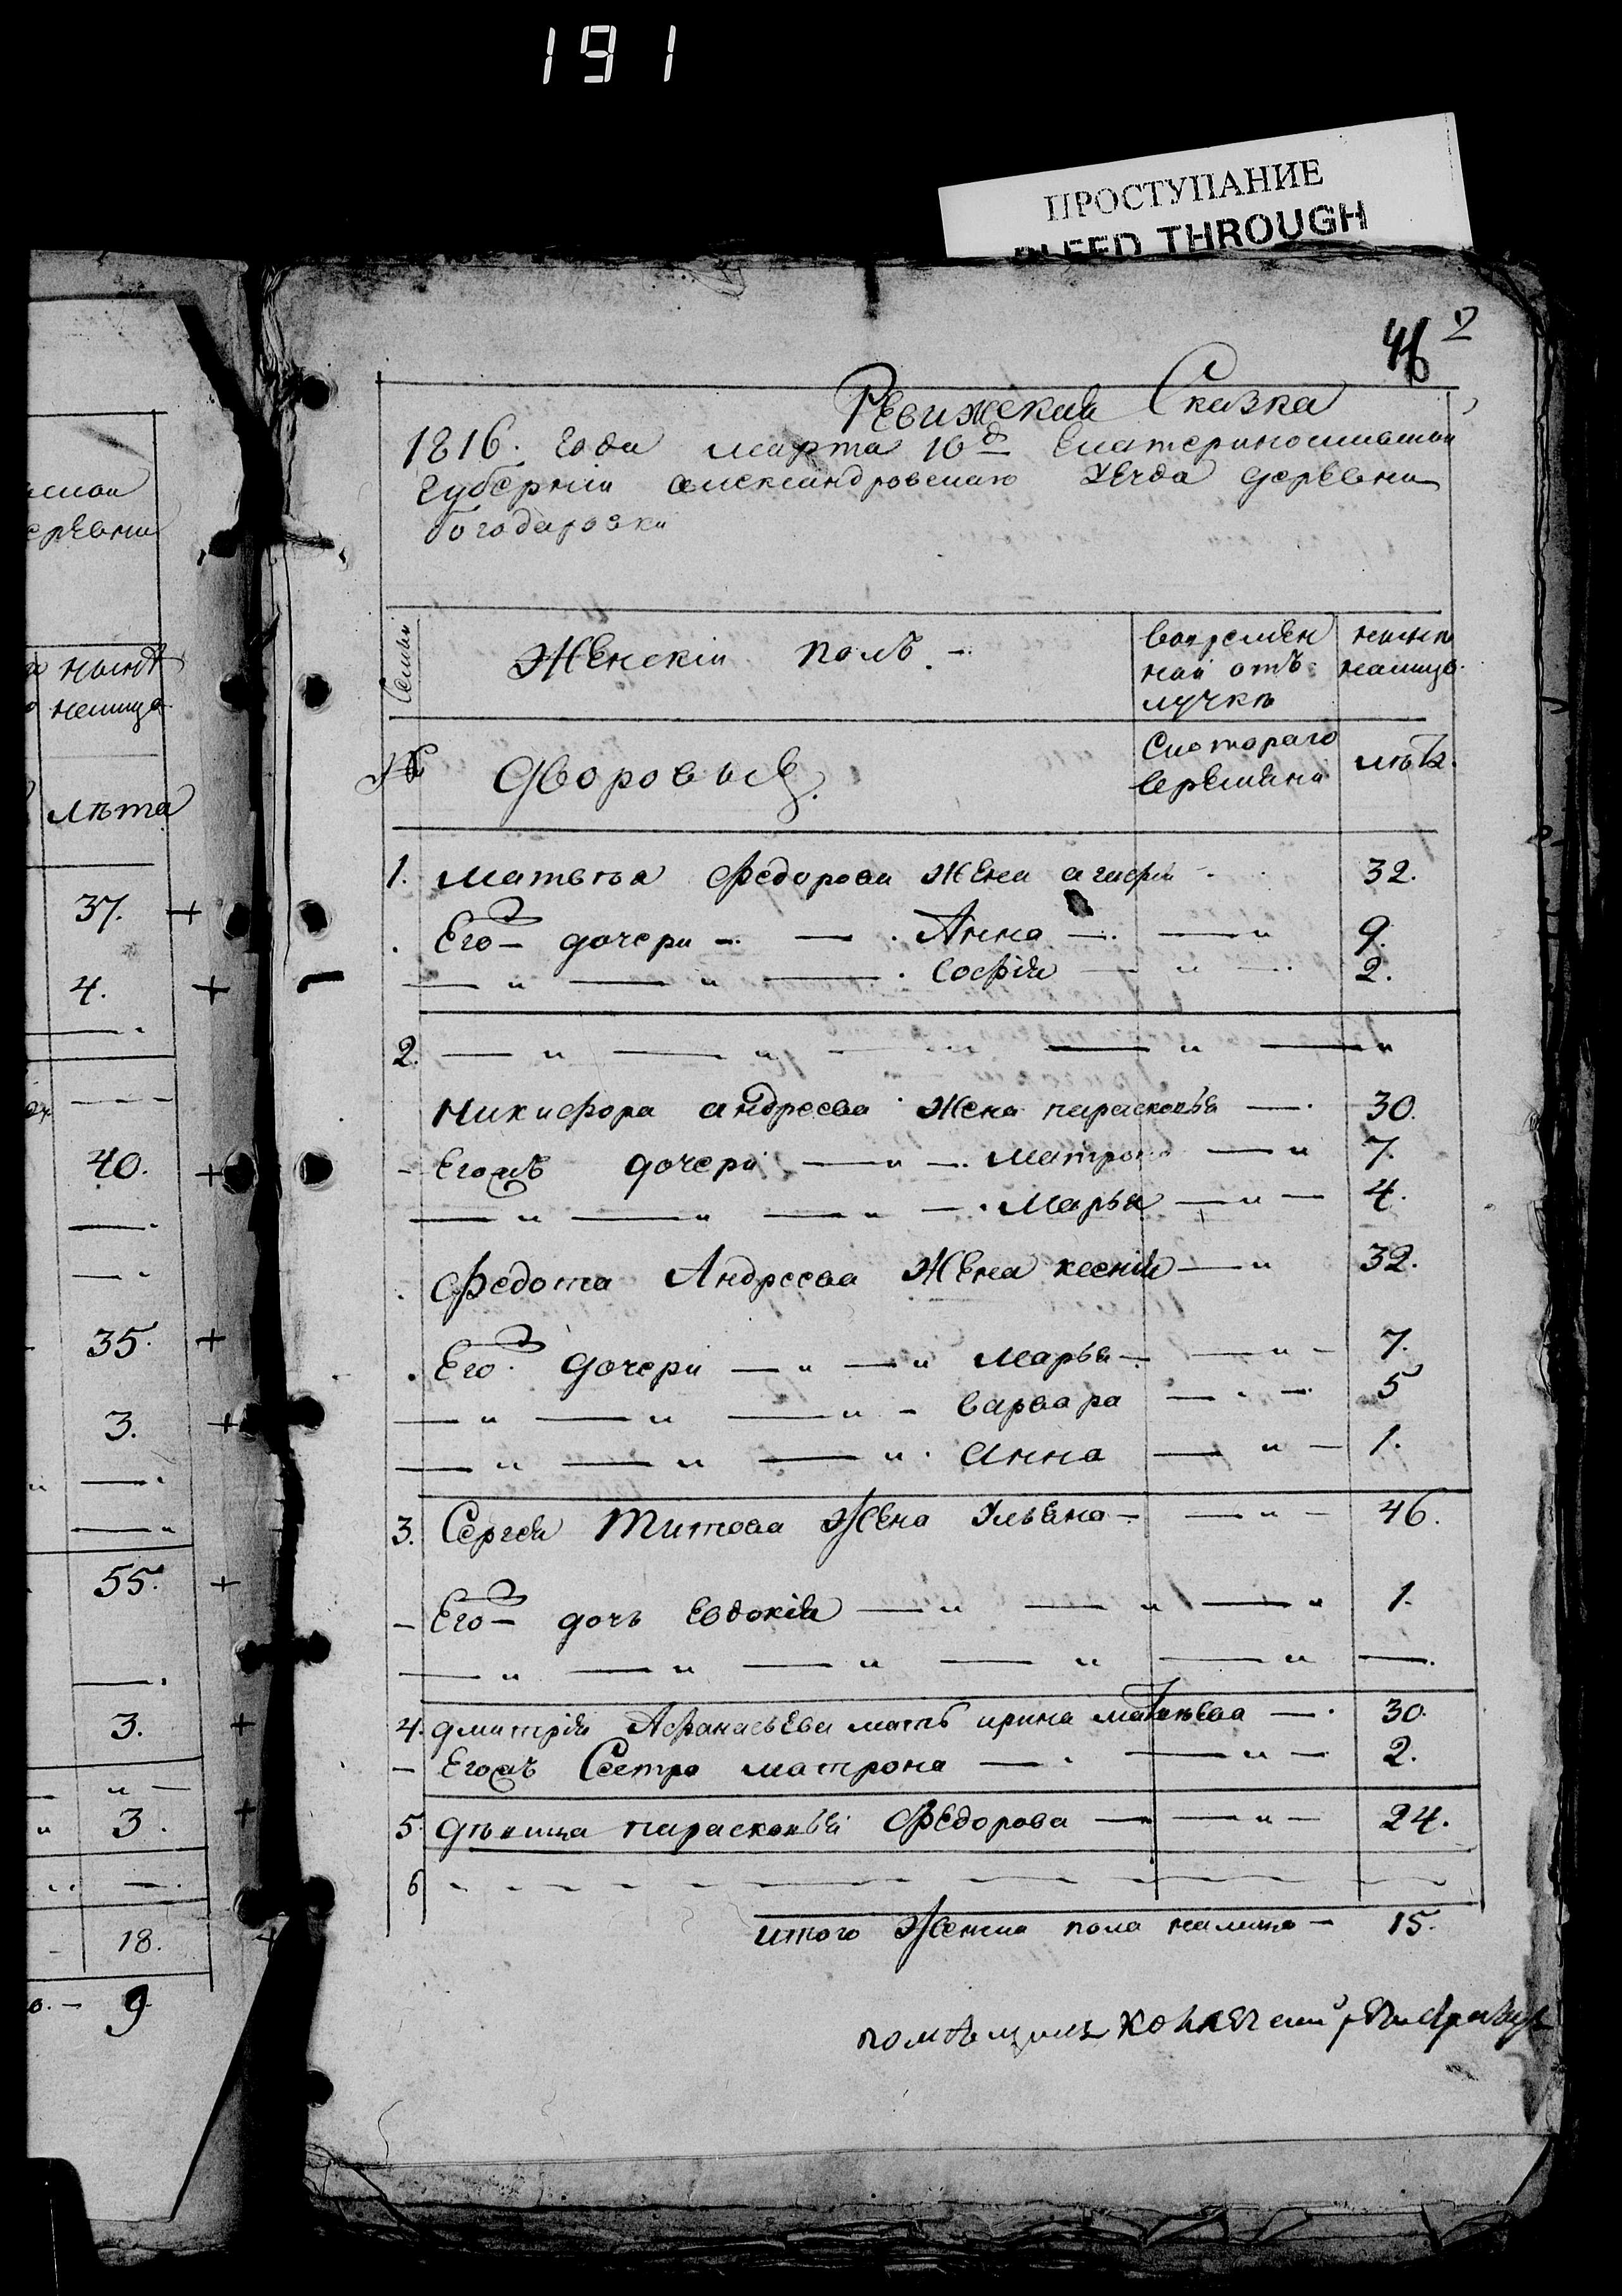 191
ПРОСТУПАНИЕ
BLEED THROUGH
46 2
Ревижская Сказка
1816. Года марта 10д Екатериносилавской
Губернiи Александровскаго Уезда деревни
богодаровки
Семьи
Женскiй полъ.
вовремен
ной отъ
лучкѣ
нынѣ
налицо
№
дворовыя
Скотораго
времяни
лѣтъ.
1. Матвѣя Федорова жена агафiя 32.
Его дочери Анна 9.
Софiя 2.
2.
Никифора андреева жена парасковья 30.
Егожъ дочери Матрона 7.
Марья 4.
Федота Андреева жена ксенiя 32.
Его дочери марья 7.
варвара 5
анна 1.
3. Сергея Титова жена Ульяна 46.
Его дочь Евдокiя 1.
4. дмитрiя Афанасьева мать ирина матвѣева 30.
Егожъ Сестра матрона 2.
5. дѣвица парасковья Федорова 24.
6
итого женска пола налицо 15.
помѣщикъ
ской
еревни
нынѣ
налицо
лѣта
37. +
4. +
40. +
35. +
3. +
55. +
3. +
3. +
18.
9